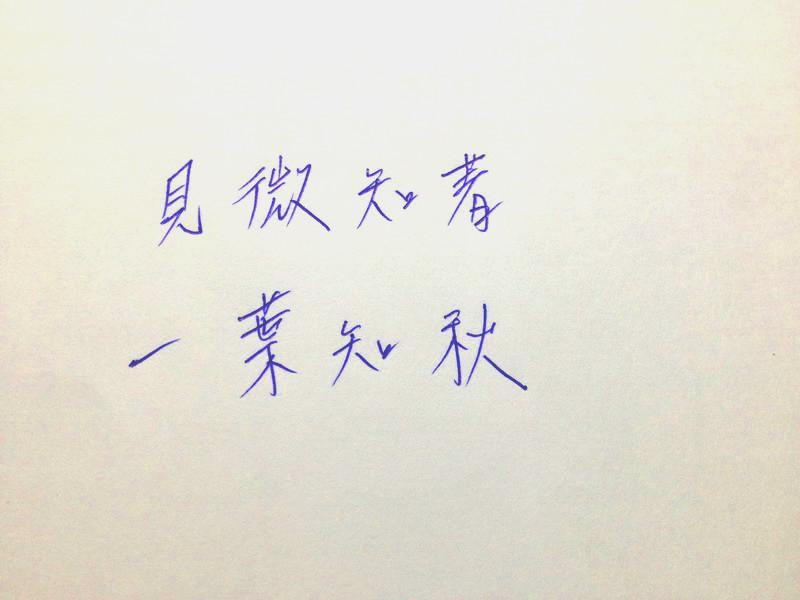 見微知着
一葉知秋